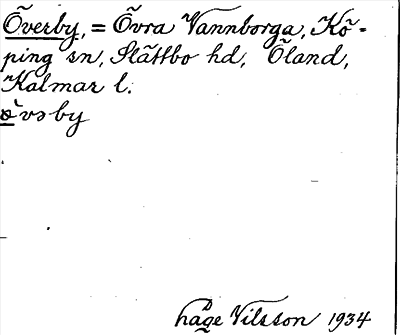 Överby, = Övra Vannborga, Kö-
ping sn, Slättbo hd, Öland,
Kalmar l.
øvəby
håge Nilsson 1934